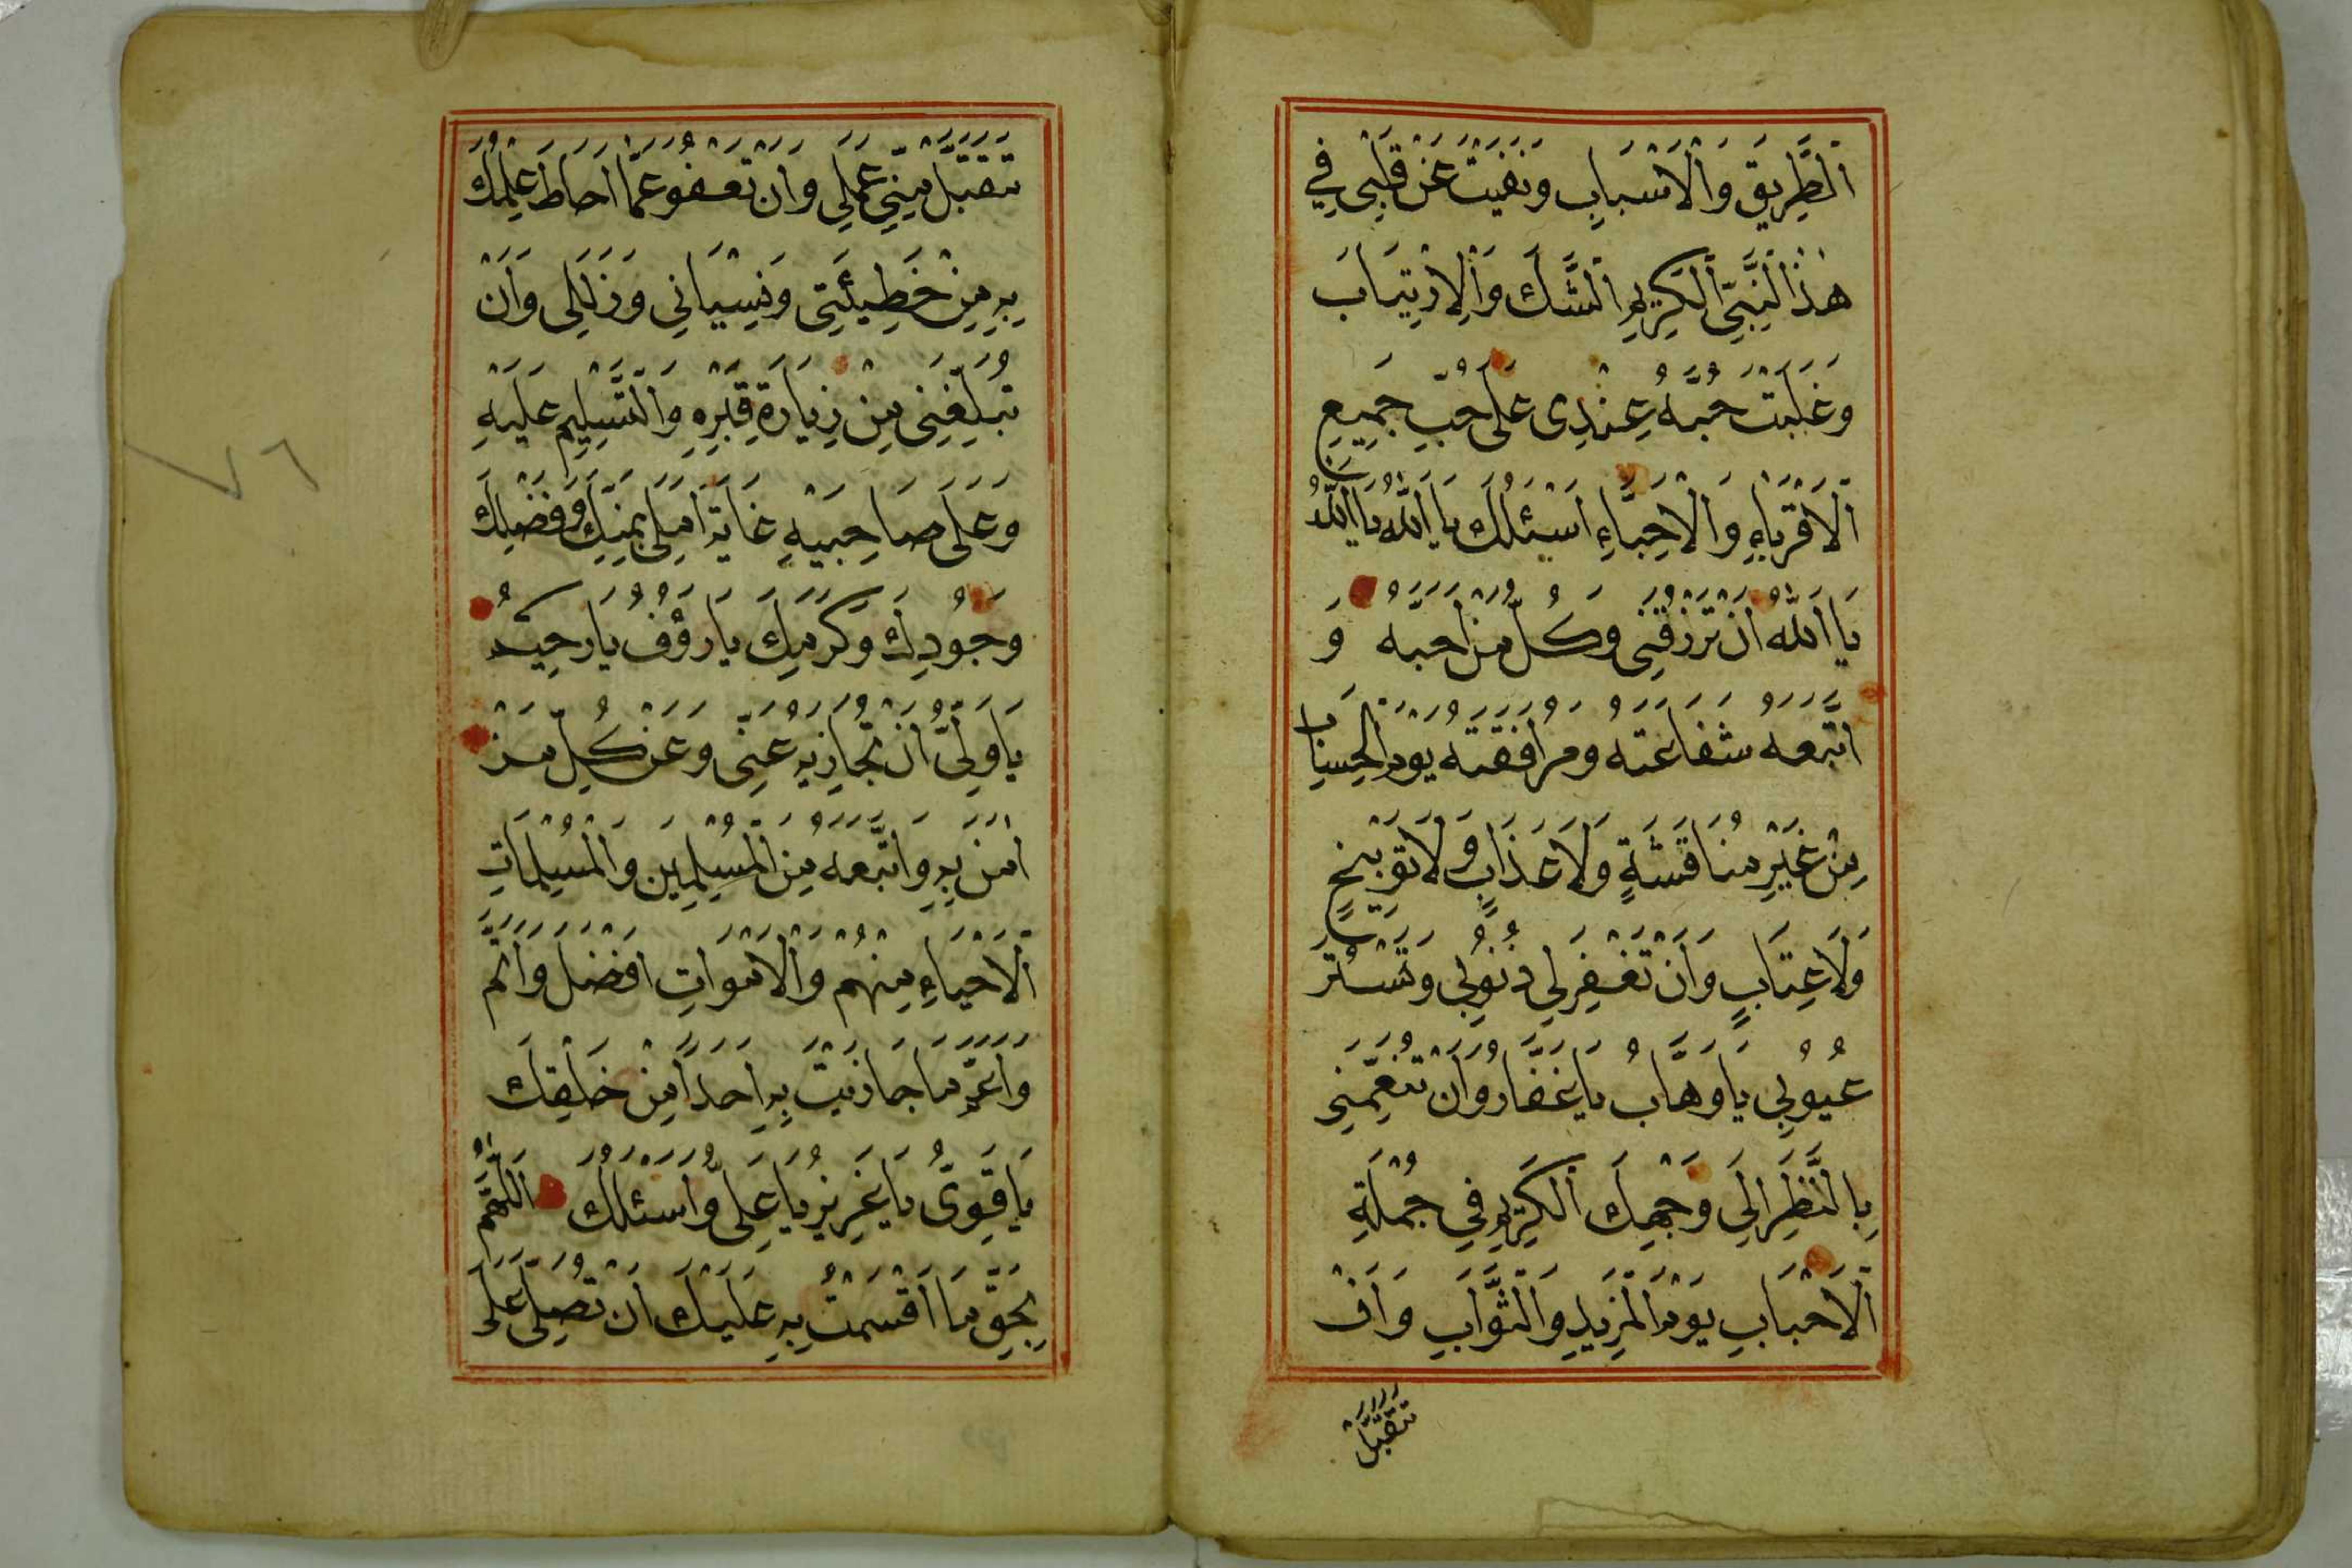 اَلطَّرِيقَ وَالْاَسْبَابِ وَنَفَيْتَ عَنْ قَلْبِي فِي
هٰذَا النَّبِيِّ الْكَرِيمِ الشَّكَّ وَالْاِرْتِيَابَ
وَغَلَبْتَ حُبَّهُ عِنْدِى عَلَى حُبِّ جَمِيعِ
اَلْاَقْرِبَاءِ وَالْاَحِبَّاءِ اَسْئَلُكَ يَا اَللّٰهُ يَا اَللّٰهُ
يَا اَللّٰهُ اَنْ تَرْزُقَنِى وَكُلَّ مَنْ اَحَبَّهُ وَ
اتَّبَعَهُ شَفَاعَتَهُ وَمُرَافَقَتَهُ يَوْمَ الْحِسَابِ
مِنْ غَيْرِ مُنَاقَشَةٍ وَلَا عَذَابٍ وَلَا تَوْبِيخٍ
وَلَا عِتَابٍ وَاَنْ تَغْفِرَ لِي ذُنُوبِي وَتَسْتُرَ
عُيُوبِي يَا وَهَّابُ يَا غَفَّارُ وَاَنْ تُنَعِّمَنِي
بِالنَّظَرِ اِلَى وَجْهِكَ الْكَرِيمِ فِي جُمْلَةِ
اَلْاَحْبَابِ يَوْمَ الْمَزِيدِ وَالثَّوَابِ وَاَنْ
تَتَقَبَّلَ
تَتَقَبَّلَ مِنِّي عَمَلِي وَاَنْ تَعْفُوَ عَمَّا اَحَاطَ عِلْمُكَ
بِهِ مِنْ خَطِيئَتِى وَنِسْيَانِي وَزَلَلِى وَاَنْ
تُبَلِّغَنِى مِنْ زِيَارَةِ قَبْرِهِ وَالتَّسْلِيمِ عَلَيْهِ
وَعَلَى صَاحِبَيْهِ غَايَةَ اَمَلِى بِمَنِّكَ وَفَضْلِكَ
وَجُودِكَ وَكَرَمِكَ يَا رَؤُفُ يَا رَحِيمُ
يَا وَلِىُّ اَنْ تُجَازِيَهُ عَنِّى وَعَنْ كُلِّ مَنْ
اٰمَنَ بِهِ وَاتَّبَعَهُ مِنَ الْمُسْلِمِينَ وَالْمُسْلِمَاتِ
اَلْاَحْيَاءِ مِنْهُمْ وَالْاَمْوَاتِ اَفْضَلَ وَاَتَمَّ
وَاَعَمَّ مَا جَازَيْتَ بِهِ اَحَدًا مِنْ خَلْقِكَ
يَا قَوِىُّ يَا عَزِيزُ يَا عَلِىُّ وَاَسْئَلُكَ اَللّٰهُمَّ
بِحَقِّ مَا اَقْسَمْتُ بِهِ عَلَيْكَ اَنْ تُصَلِّىَ عَلَى
٧٦